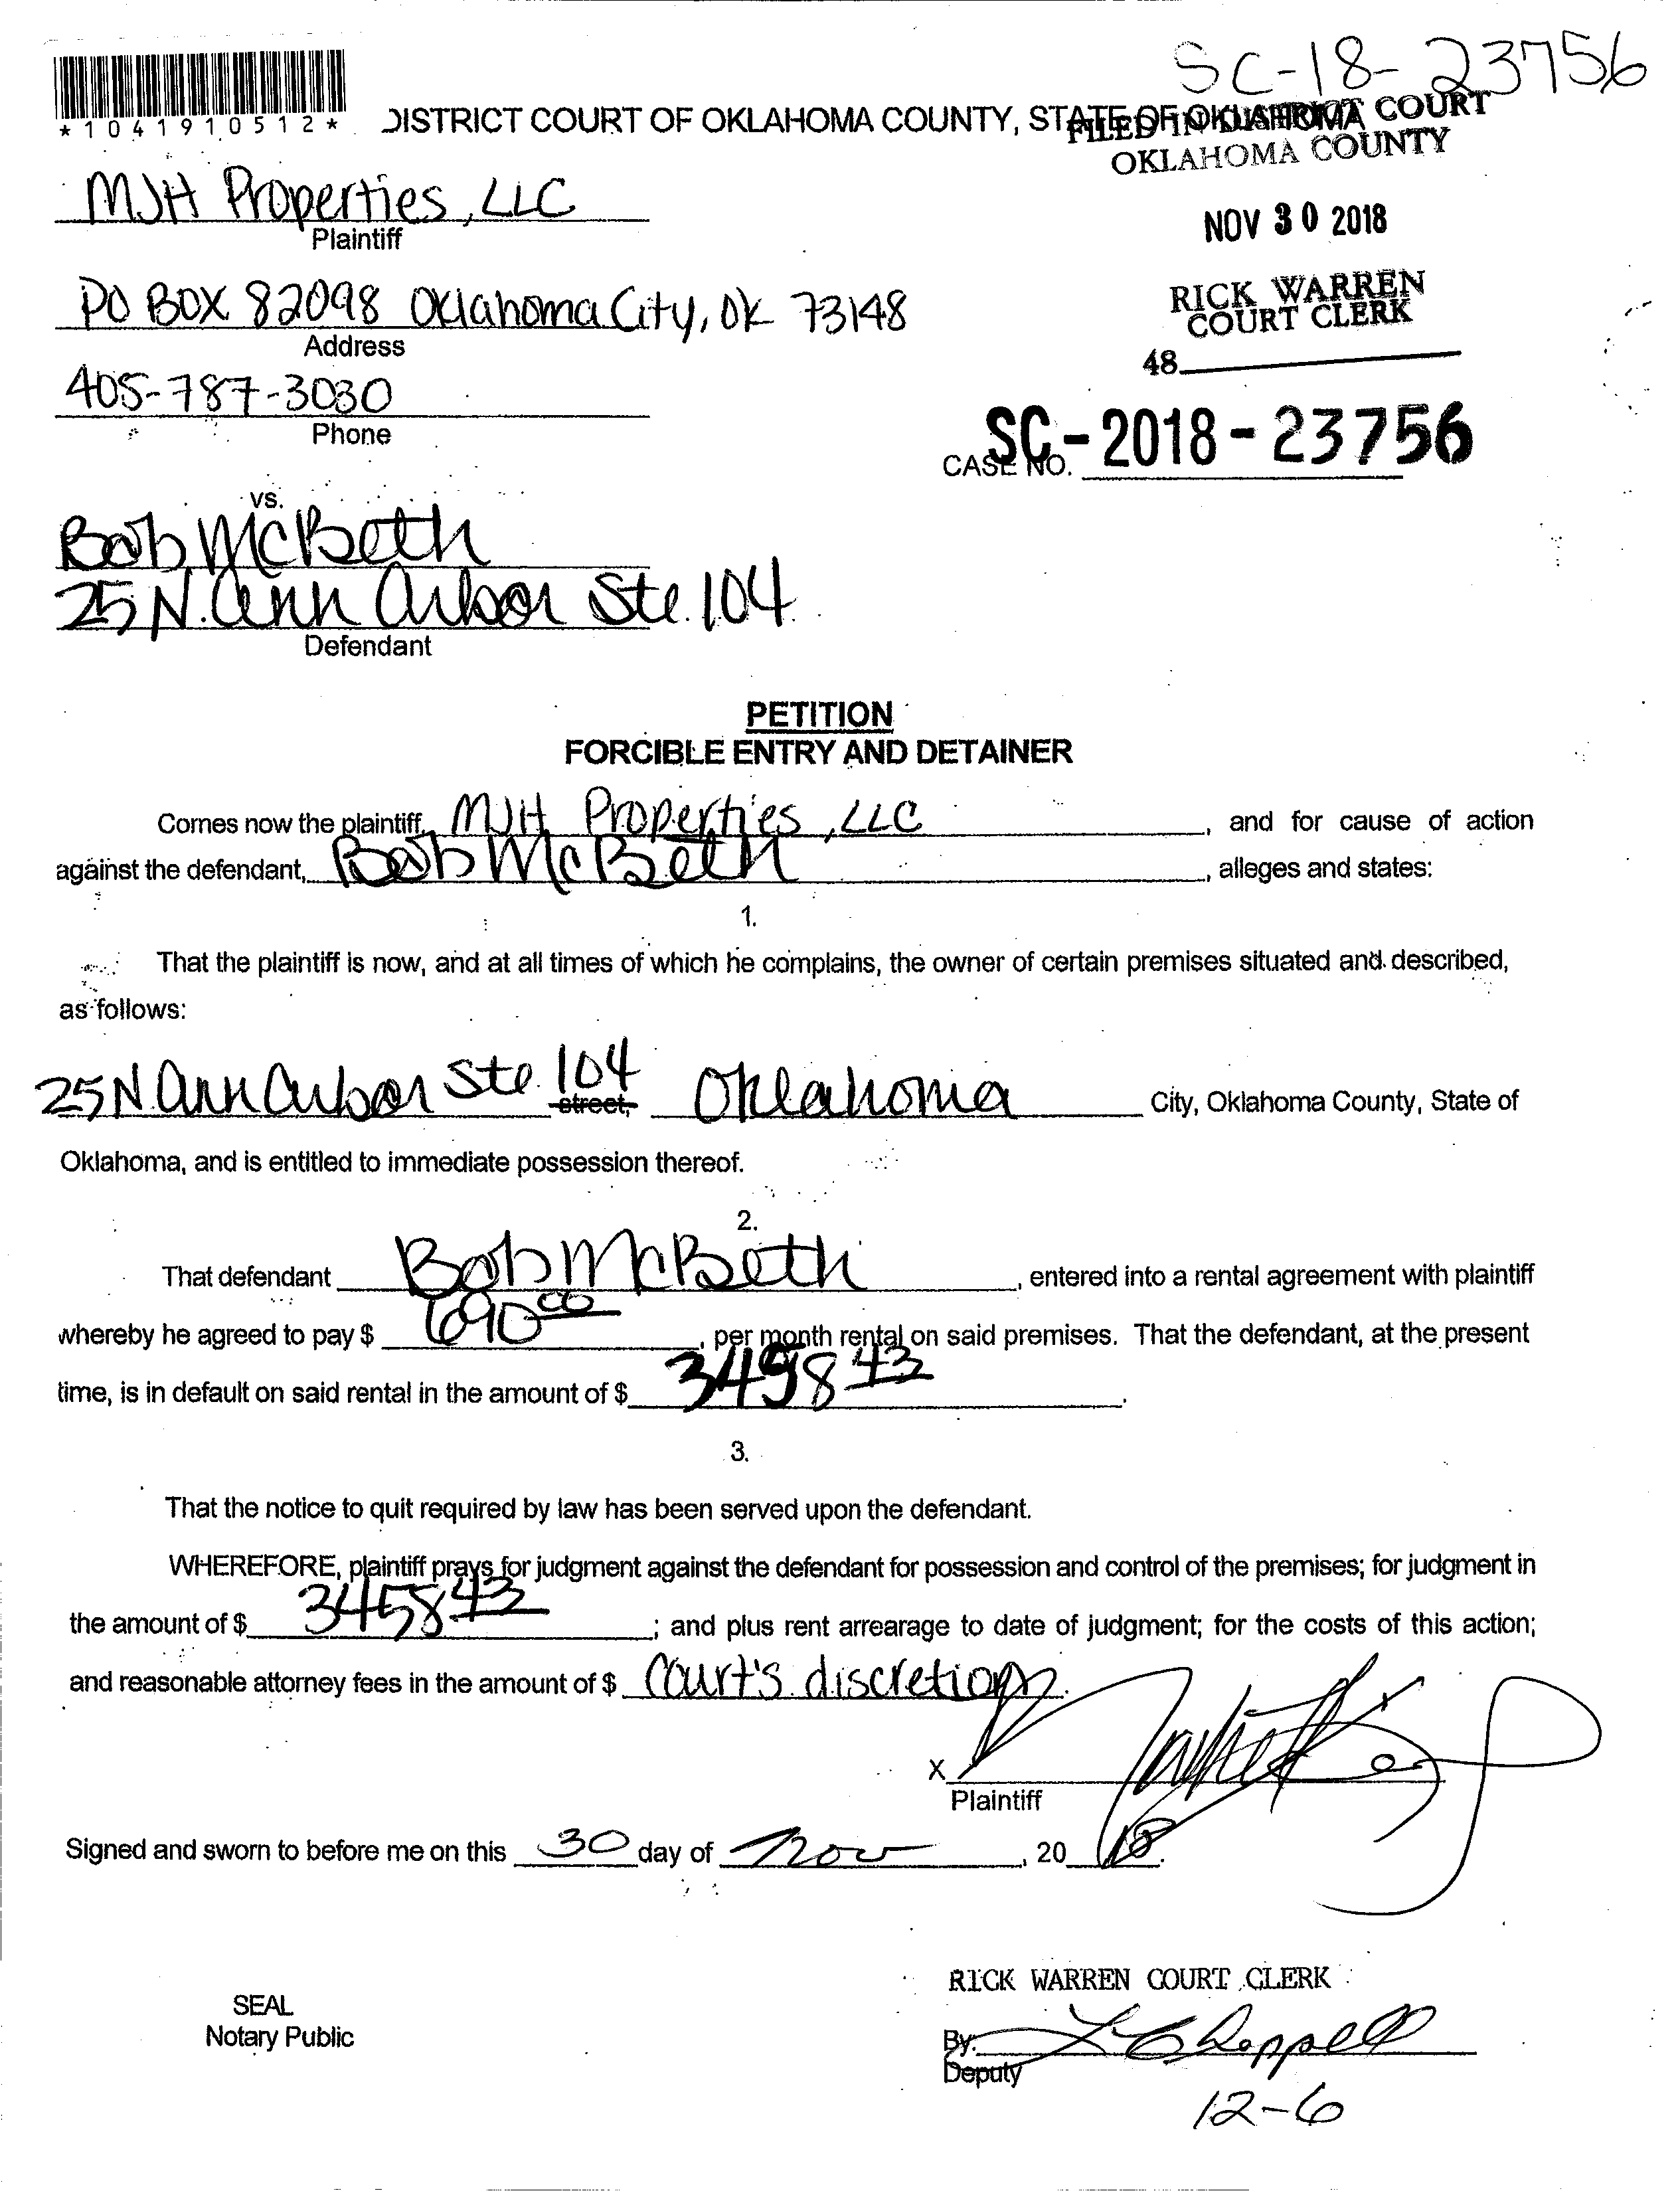 SC-18-23756
*1041910512*
DISTRICT COURT OF OKLAHOMA COUNTY, STATE OF OKLAHOMA
FILED IN DISTRICT COURT
OKLAHOMA COUNTY
MJH Properties, LLC
Plaintiff
NOV 30 2018
PO BOX 82098 Oklahoma City, OK 73148
Address
RICK WARREN
COURT CLERK
48
405-787-3030
Phone
SC-2018-23756
CASE NO.
vs.
Bob McBeth
25 N. Ann Arbor Ste. 104
Defendant
PETITION
FORCIBLE ENTRY AND DETAINER
Comes now the plaintiff, MJH Properties, LLC, and for cause of action
against the defendant, Bob McBeth, alleges and states:
1.
That the plaintiff is now, and at all times of which he complains, the owner of certain premises situated and described,
as follows:
25 N Ann Arbor Ste. 104 street, Oklahoma City, Oklahoma County, State of
Oklahoma, and is entitled to immediate possession thereof.
2.
That defendant Bob McBeth, entered into a rental agreement with plaintiff
whereby he agreed to pay $ 690 00, per month rental on said premises. That the defendant, at the present
time, is in default on said rental in the amount of $ 3458 43.
3.
That the notice to quit required by law has been served upon the defendant.
WHEREFORE, plaintiff prays for judgment against the defendant for possession and control of the premises; for judgment in
the amount of $ 3458 43; and plus rent arrearage to date of judgment; for the costs of this action;
and reasonable attorney fees in the amount of $ Court's discretion.
X
Plaintiff
Signed and sworn to before me on this 30 day of Nov, 20 18.
RICK WARREN COURT CLERK
SEAL
Notary Public
By: L Chappell
Deputy
12-6